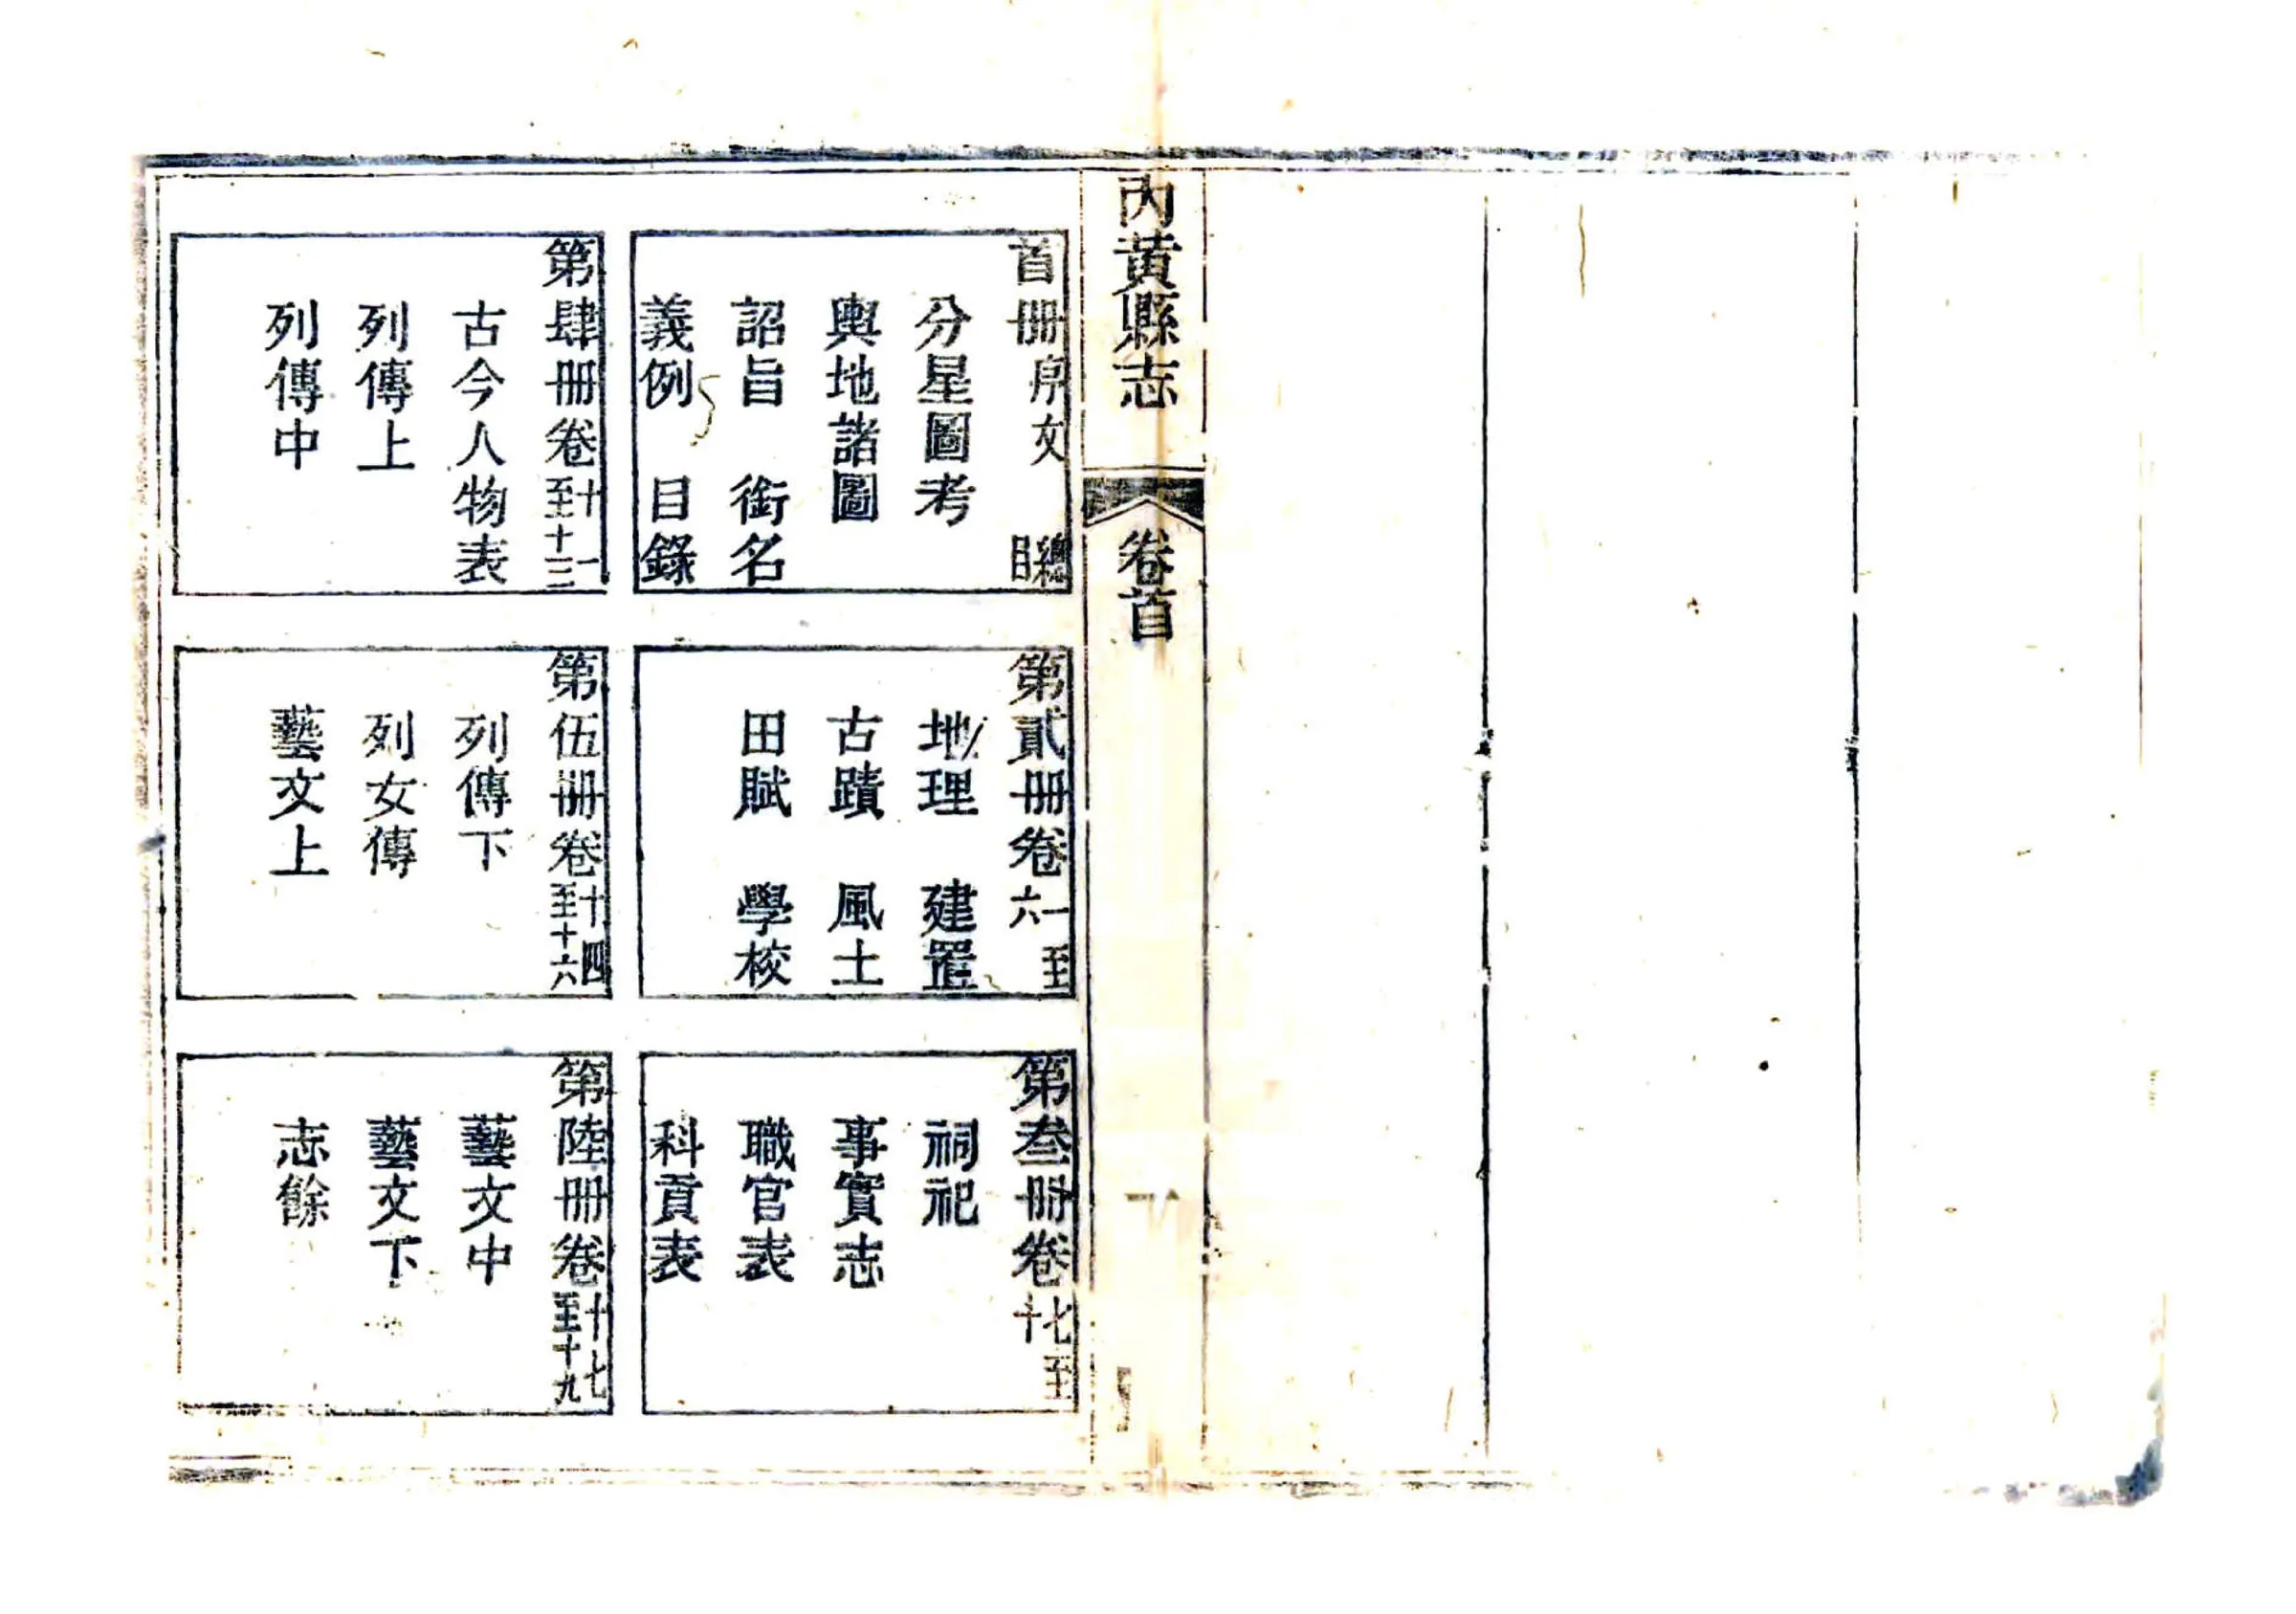 內黃縣志
卷首
首冊 序文 總目
分星圖考
輿地諸圖
詔旨 銜名
義例 目錄
第貳冊卷一至六
地理 建置
古蹟 風土
田賦 學校
第叁冊卷七至十
祠祀
事實志
職官表
科貢表
第肆冊卷十一至十三
古今人物表
列傳上
列傳中
第伍冊卷十四至十六
列傳下
列女傳
藝文上
第陸冊卷十七至十九
藝文中
藝文下
志餘